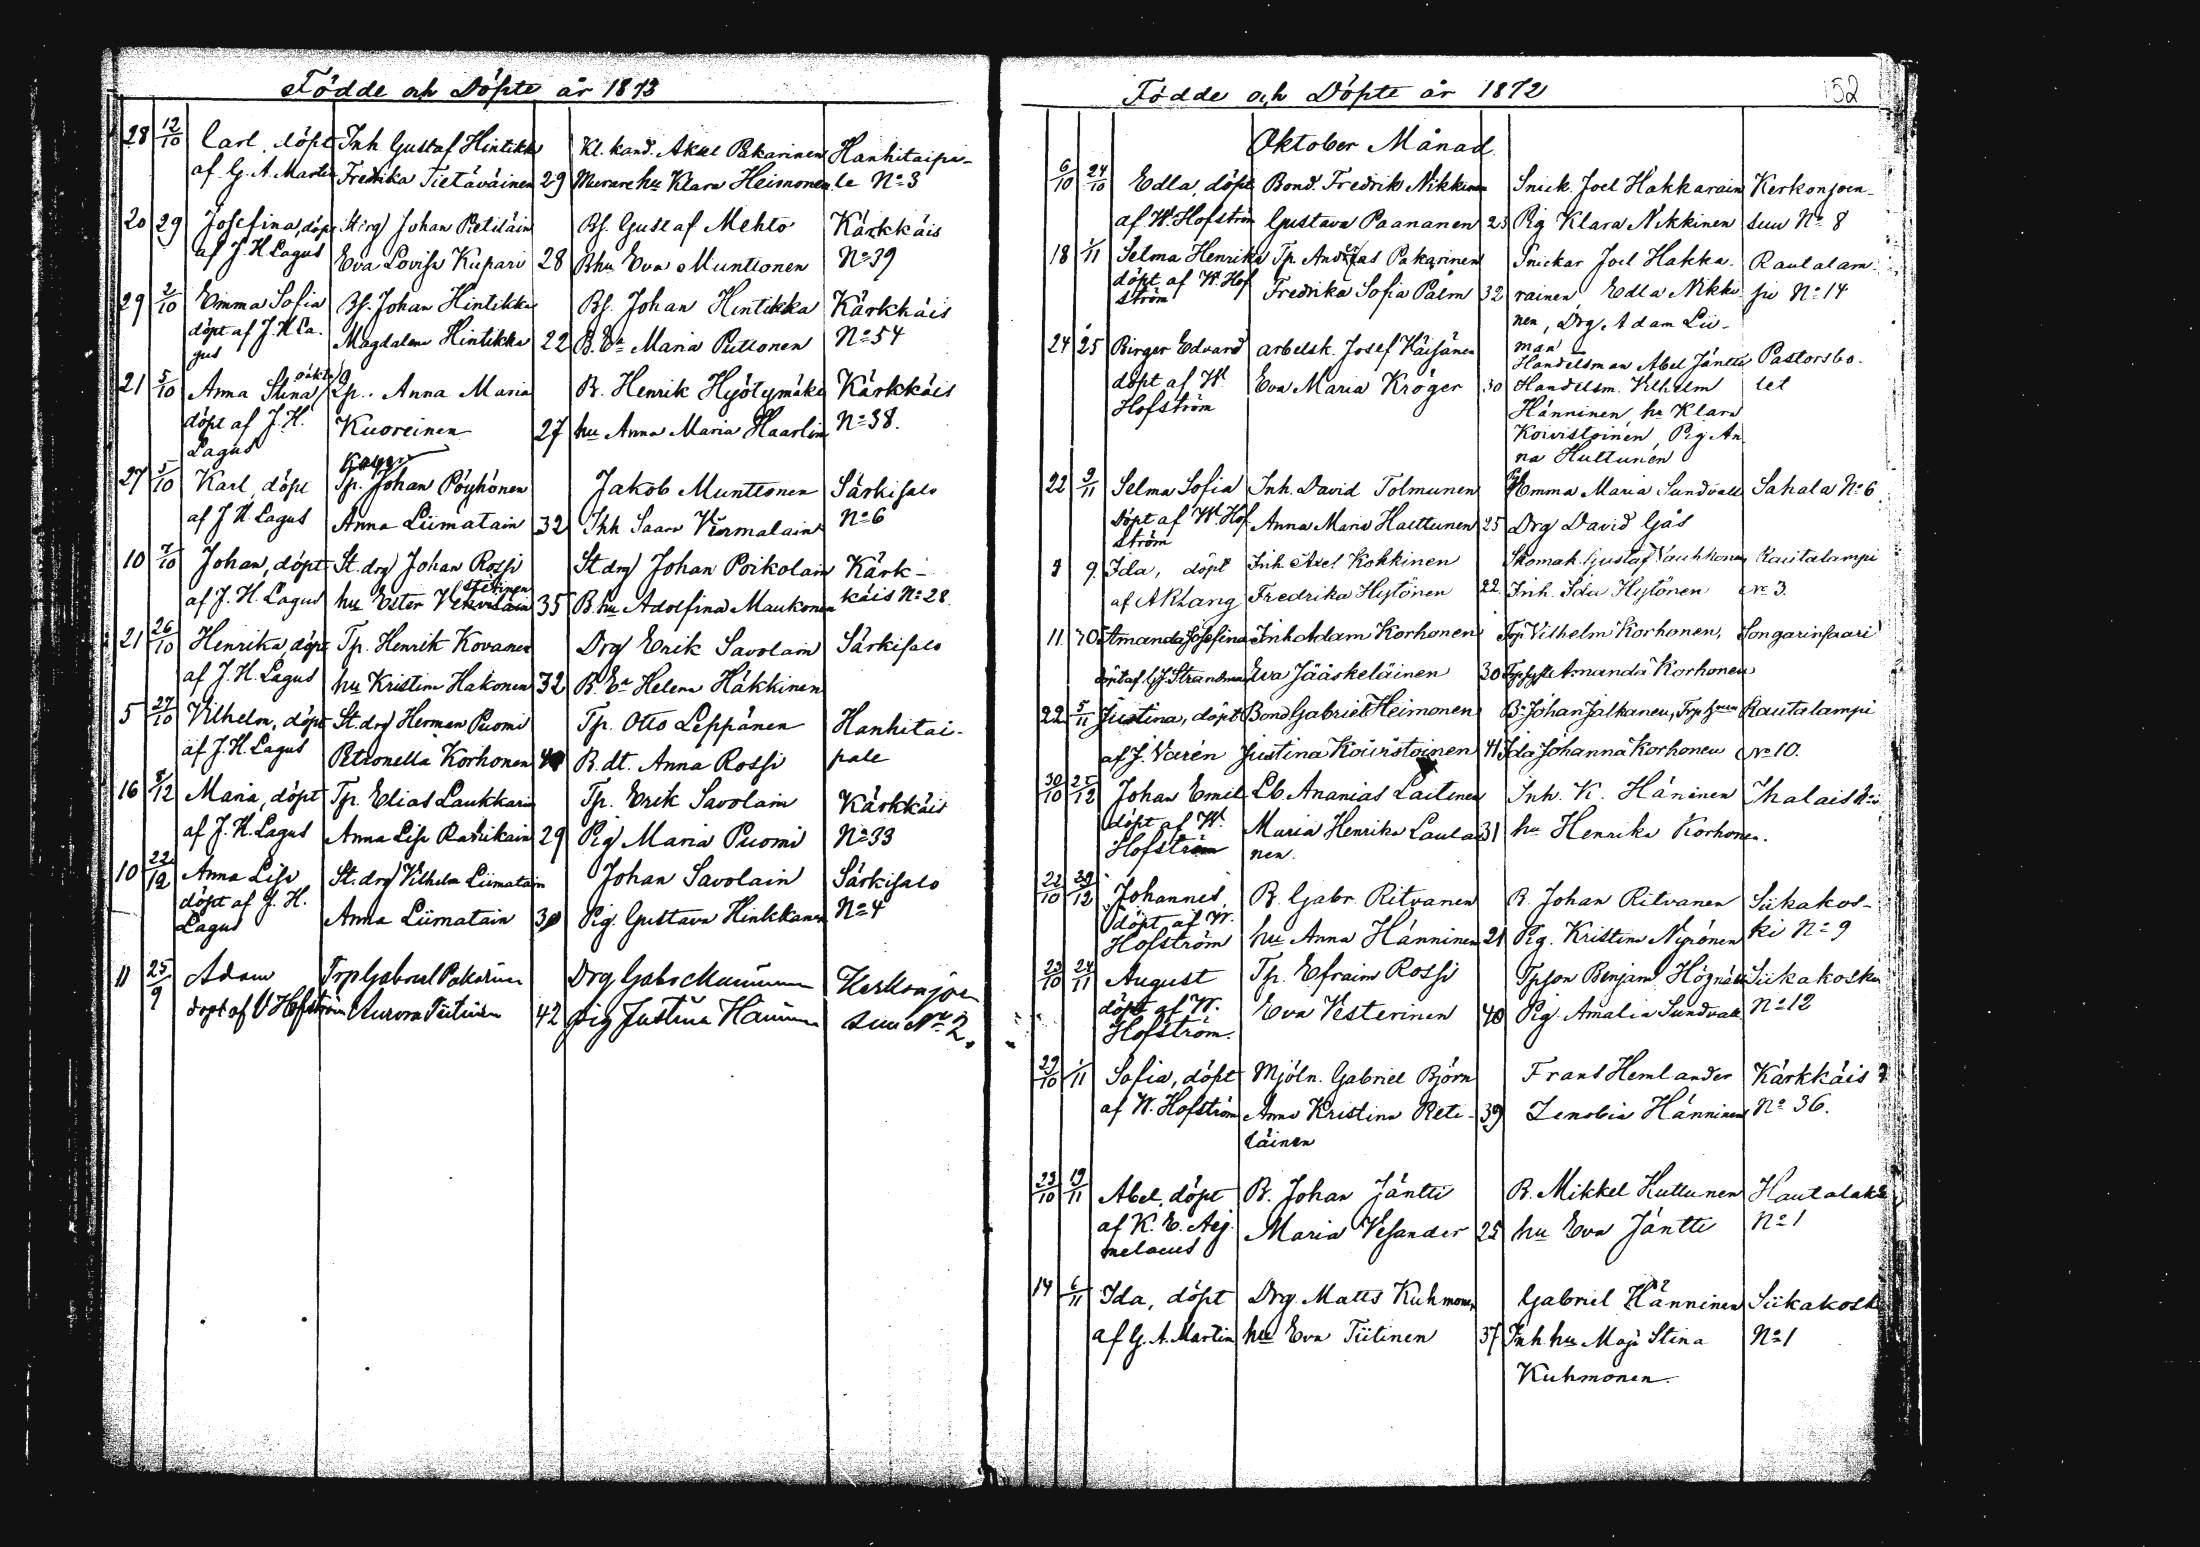 Födde och Döpte år 1873
28 12/10 Carl, döpt Inh Gustaf Hintikka Kl. kand. Akael Pakarinen Hanhitaipa-
af G. A. Martin Fredrika Tietäväinen 29 Murare hu Klara Heimonen le No 3
20 29 Josefina, döpt St.drg Johan Pietiläin Bs. Gustaf Mehto Kärkkäis
af J. H. Lagus Eva Lovisa Kupari 28 Bhu Eva Munttonen No 39
29 2/10 Emma Sofia Bs. Johan Hintikka Bs. Johan Hintikka Kärkkäis
döpt af J. H. La- Magdalena Hintikka 22 B. Ea Maria Puttonen No 54
gus
oäkta
21 5/10 Anna Stina Lp. Anna Maria B. Henrik Hyötymäki Kärkkäis
döpt af J. H. Kuoreinen 27 hu Anna Maria Haarlin No 38.
Lagus
27 5/10 Karl, döpt Tp. Johan Pöyhönen Jakob Munttonen Särkisalo
af J. H. Lagus Anna Liimatain 32 Inh Saara Viormalain No 6
10 7/10 Johan, döpt St.drg Johan Rossi St.drg Johan Poikolain Kärk-
af J. H. Lagus hu Ester 35 B. hu Adolfina Maukonen käis No 28
21 26/10 Henrika, döpt Tp. Henrik Kovanen Drg Erik Savolain Särkisalo
af J. H. Lagus hu Kristina Hakonen 32 B. Ea Helena Häkkinen
5 27/10 Vilhelm, döpt St.drg Herman Puomi Tp. Otto Leppänen Hanhitai-
af J. H. Lagus Petronella Korhonen 40 B. dt. Anna Rossi pale
16 8/12 Maria, döpt Tp. Elias Laukkarin Tp. Erik Savolain Kärkkäis
af J. H. Lagus Anna Lisa Ratrikain 29 Pig Maria Puomi No 33
10 22/12 Anna Lisa St.drg Vilhelm Liimatain Johan Savolain Särkisalo
döpt af J. H. Anna Liimatain 30 Pig. Gustava Hinkkanen No 4
Lagus
11 25/9 Adam Trp Gabriel Pakarinen Drg Gabr Manninen Kerkonjoen
döpt af V Hofström Aurora Tiitinen 42 pig Justina Hänninen suu No 2.
Födde och Döpte år 1872
152
Oktober Månad.
6/10 24/10 Edla, döpt Bond. Fredrik Nikkinen Snick. Joel Hakkarain Kerkonjoen-
af W. Hofström Gustava Paananen 23 Pig Klara Nikkinen suu No 8
18 1/11 Selma Henrika Tp. Andreas Pakarinen Snickar Joel Hakka- Rautalam-
döpt af W. Hof Fredrika Sofia Palm 32 rainen, Edla Nikki- pi No 14
ström nen, Drg. Adam Lii-
man
24 25 Birger Edvard arbetsk. Josef Käisänen Handelsman Abel Jäntti Pastorsbo-
döpt af W. Eva Maria Kröger 30 Handelsm. Vilhelm let
Hofström Hänninen, hu Klara
Koivistoinen, Pig An
na Huttunen
22 3/11 Selma Sofia Inh. David Tolmunen Emma Maria Sundvall Sahala No 6.
döpt af W. Hof Anna Maria Huttunen 25 Drg David Gås
ström
3 9. Ida, döpt Inh. Axel Kokkinen Skomak. Gustaf Vauhkonen Rautalampi
af A R Lang Fredrika Hytönen 22. Inh. Ida Hytönen No 3.
11 Amanda Josefina Inh Adam Korhonen Trp Vilhelm Korhonen, Songarinsaari
döpt af G. J. Strandman Eva Jääskeläinen 30 Amanda Korhonen
22 5/11 Justina, döpt Bond Gabriel Heimonen B. Johan Jalkanen, Rautalampi
af J. Varén Justina Koivistoinen 41 Ida Johanna Korhonen No 10.
30/10 25/12 Johan Emil Lb. Ananias Laitinen Inh. K. Häninen
döpt af W. Maria Henrika Lauta 31 hu Henrika Korhonen.
Hofström nen.
22/10 29/12 Johannes, B. Gabr. Ritvanen B. Johan Ritvanen Siikakos-
döpt af W. hu Anna Hänninen 21 Pig. Kristina Nyrönen ki No 9
Hofström
23/10 24/11 August Tp. Efraim Rossi Tpson Benjam. Högnäs Siikakoski
döpt af W. Eva Vesterinen 40 Pig. Amalia Sundvall No 12
Hofström.
29/10 1/11 Sofia, döpt Mjöln. Gabriel Björn Frans Hemlander Kärkkäis
af W. Hofström Anna Kristina Pieti- 39 Zenobia Hänninen No 36.
läinen
23/10 19/11 Abel, döpt B. Johan Jäntti B. Mikkel Huttunen Hautalaks
af K. E. Aej- Maria Vesander 25 hu Eva Jäntti No 1
melaeus
14 6/11 Ida, döpt Drg. Matts Kuhmonen Gabriel Hänninen Siikakoski
af G. A. Martin hu Eva Tiitinen 37 Inh. hu Maja Stina No 1
Kuhmonen.